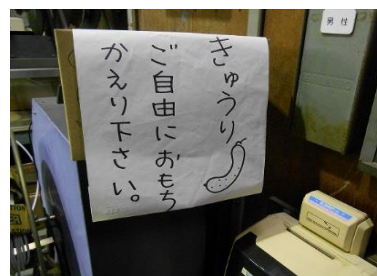 きゅうり
ご自由におもち
かえり下さい。
男性